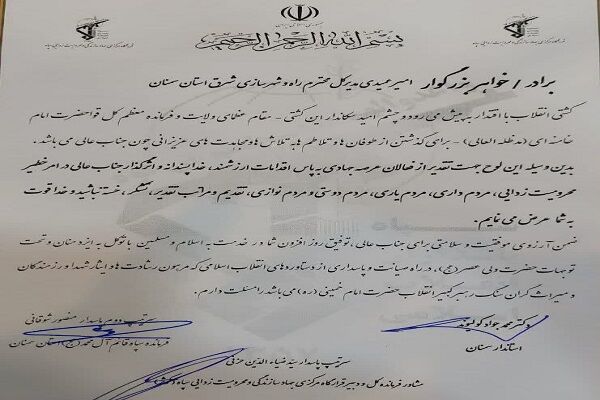 جمهوری اسلامی ایران
بسم الله الرحمن الرحیم
برادر / خواهر بزرگوار امیر عبیدی مدیرکل محترم راه و شهرسازی شرق استان سمنان
کشتی انقلاب با اقتدار به پیش می رود و چشم امید سکاندار این کشتی - مقام عظمای ولایت و فرمانده معظم کل قوا حضرت امام
خامنه ای (مدظله العالی) - برای گذشتن از طوفان ها و تلاطم ها به تلاش ها و مجاهدت های عزیزانی چون جناب عالی می باشد.
بدین وسیله این لوح جهت تقدیر از فعالان عرصه جهادی به پاس اقدامات ارزشمند، خداپسندانه و اثرگذار جناب عالی در امر خطیر
محرومیت زدایی، مردم داری، مردم یاری، مردم دوستی و مردم نوازی، تقدیم و مراتب تقدیر، تشکر، خسته نباشید و خدا قوت
به شما عرض می نمایم.
ضمن آرزوی موفقیت و سلامتی برای جناب عالی، توفیق روز افزون شما در خدمت به اسلام و مسلمین با توکل به ایزد منان و تحت
توجهات حضرت ولی عصر (عج)، در راه صیانت و پاسداری از دستاوردهای انقلاب اسلامی که مرهون رشادت ها و ایثار شهدا و رزمندگان
و میراث گران سنگ رهبر کبیر انقلاب حضرت امام خمینی (ره) می باشد را مسئلت دارم.
دکتر محمد جواد کولیوند
استاندار سمنان
سرتیپ دوم پاسدار منصور شوقانی
فرمانده سپاه قائم آل محمد (عج) استان سمنان
سرتیپ پاسدار سید ضیاءالدین حزنی
مشاور فرمانده کل و دبیر قرارگاه مرکزی جهاد سازندگی و محرومیت زدایی سپاه